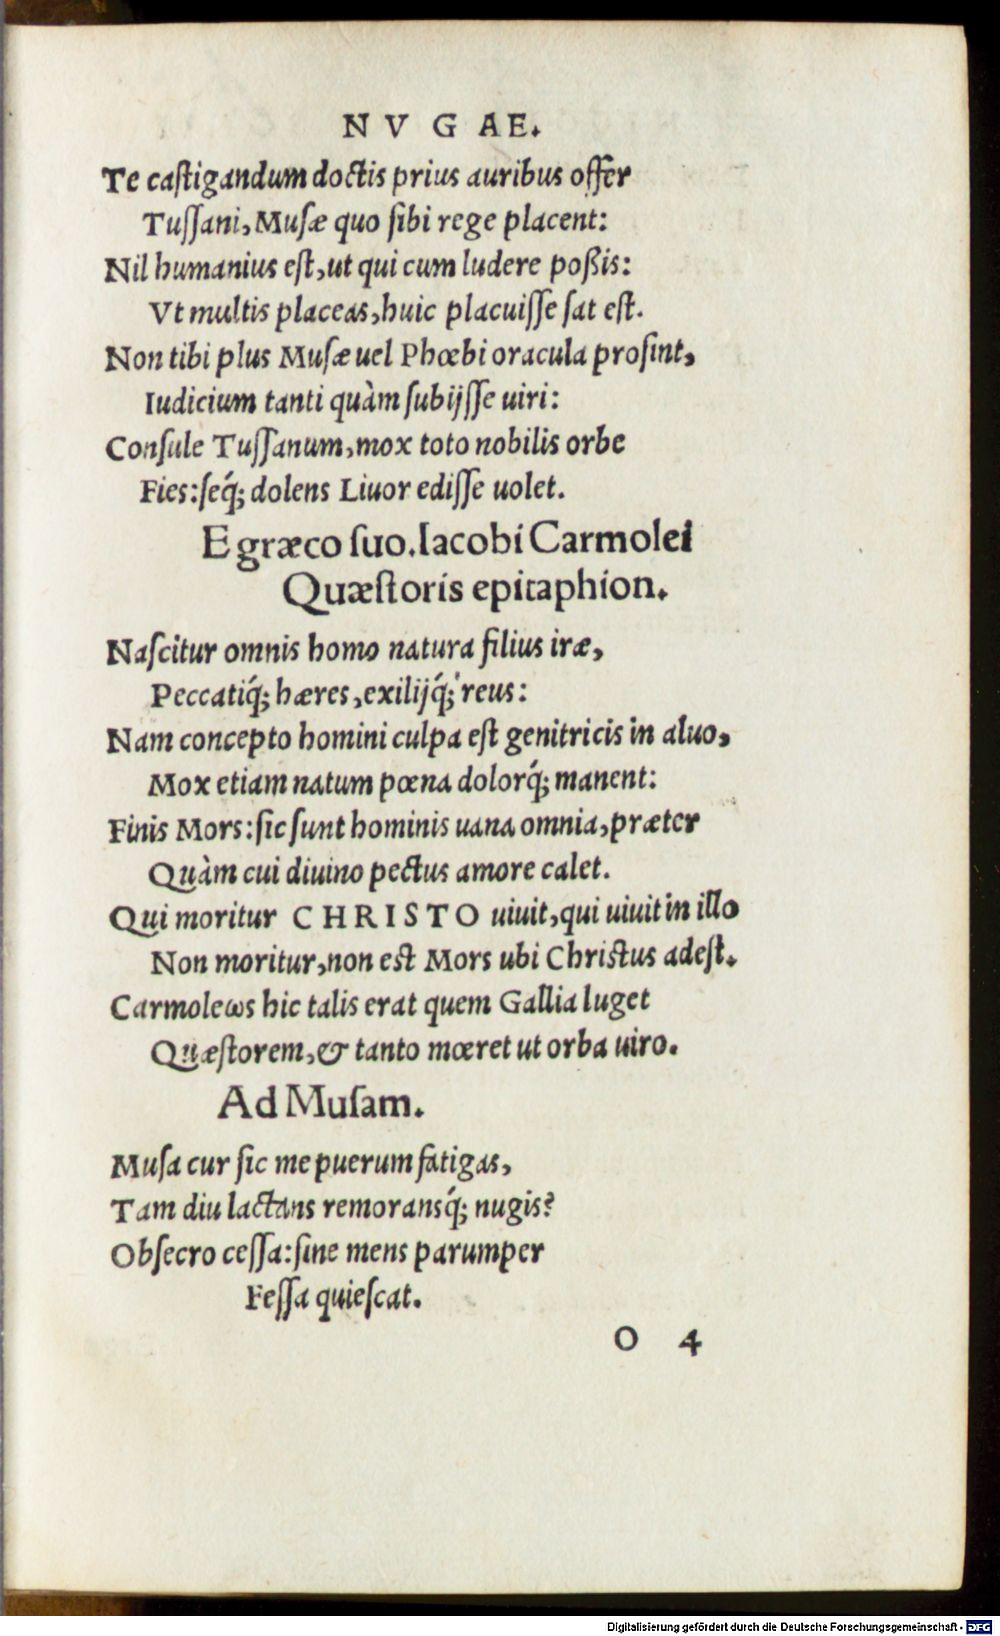 NVGAE.
Te caſtigandum doctis prius auribus offer
Tuſſani, Muſæ quo ſibi rege placent:
Nil humanius eſt, ut qui cum ludere poßis:
Vt multis placeas, huic placuiſſe ſat eſt.
Non tibi plus Muſæ uel Phœbi oracula proſint,
Iudicium tanti quàm ſubijſſe uiri:
Conſule Tuſſanum, mox toto nobilis orbe
Fies: ſeq́; dolens Liuor ediſſe uolet.
E græco ſuo. Iacobi Carmolei
Quæſtoris epitaphion.
Naſcitur omnis homo natura filius iræ,
Peccatiq́; hæres, exilijq́; reus:
Nam concepto homini culpa eſt genitricis in aluo,
Mox etiam natum pœna dolorq́; manent:
Finis Mors: ſic ſunt hominis uana omnia, præter
Quàm cui diuino pectus amore calet.
Qui moritur CHRISTO uiuit, qui uiuit in illo
Non moritur, non est Mors ubi Christus adeſt.
Carmoleωs hic talis erat quem Gallia luget
Quæſtorem, & tanto mœret ut orba uiro.
Ad Muſam.
Muſa cur ſic me puerum fatigas,
Tam diu lactans remoransq́; nugis?
Obſecro ceſſa: ſine mens parumper
Feſſa quieſcat.
O 4
Digitalisierung gefördert durch die Deutsche Forschungsgemeinschaft - DFG